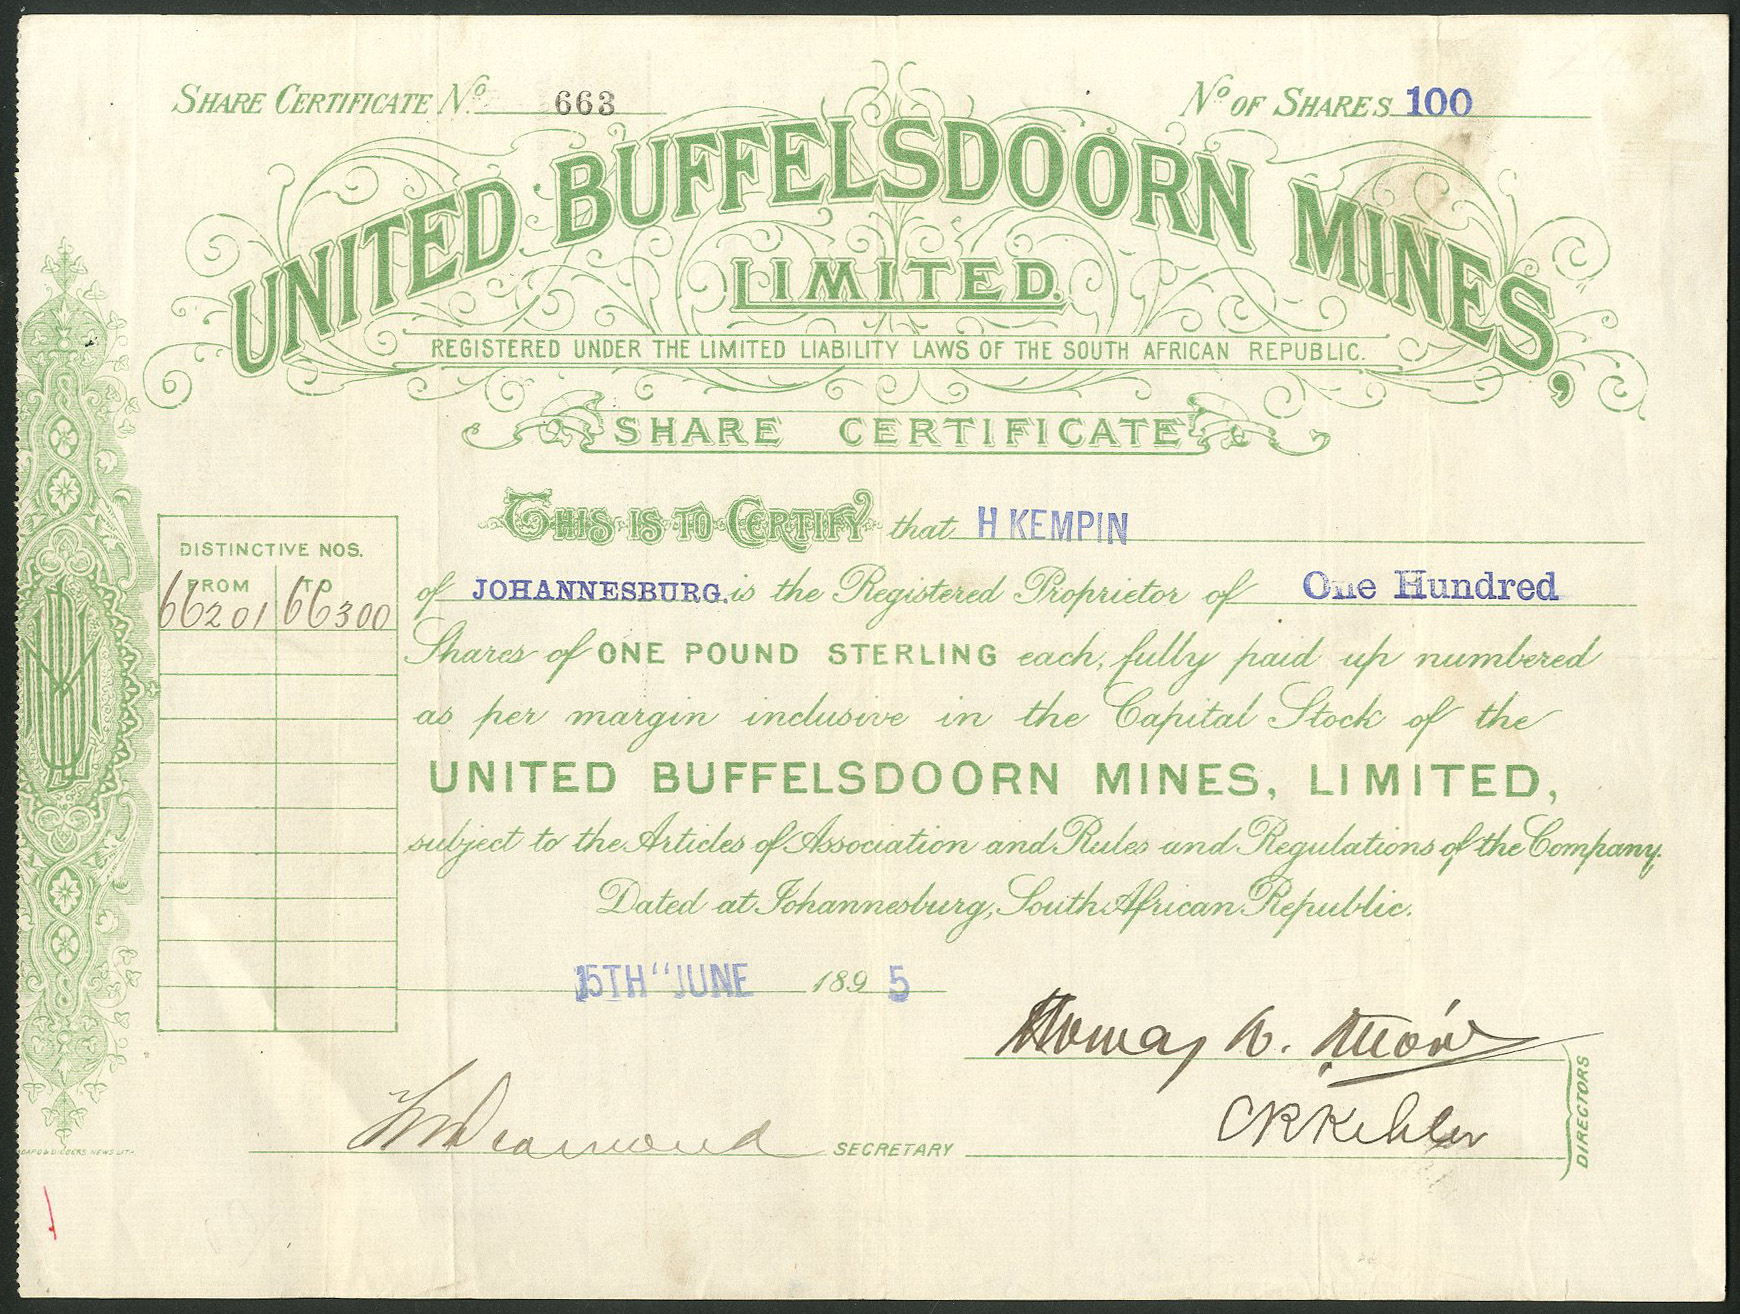 SHARE CERTIFICATE No. 663 No OF SHARES 100
UNITED BUFFELSDOORN MINES,
LIMITED.
REGISTERED UNDER THE LIMITED LIABILITY LAWS OF THE SOUTH AFRICAN REPUBLIC.
SHARE CERTIFICATE
THIS IS TO CERTIFY that H KEMPIN
DISTINCTIVE NOS.
FROM TO
66201 66300
of JOHANNESBURG. is the Registered Proprietor of One Hundred
Shares of ONE POUND STERLING each, fully paid up numbered
as per margin inclusive in the Capital Stock of the
UNITED BUFFELSDOORN MINES, LIMITED,
subject to the Articles of Association and Rules and Regulations of the Company.
Dated at Johannesburg, South African Republic.
15TH " JUNE 1895
Thomas W.
SECRETARY
DIRECTORS
DIGGERS NEWS LITH